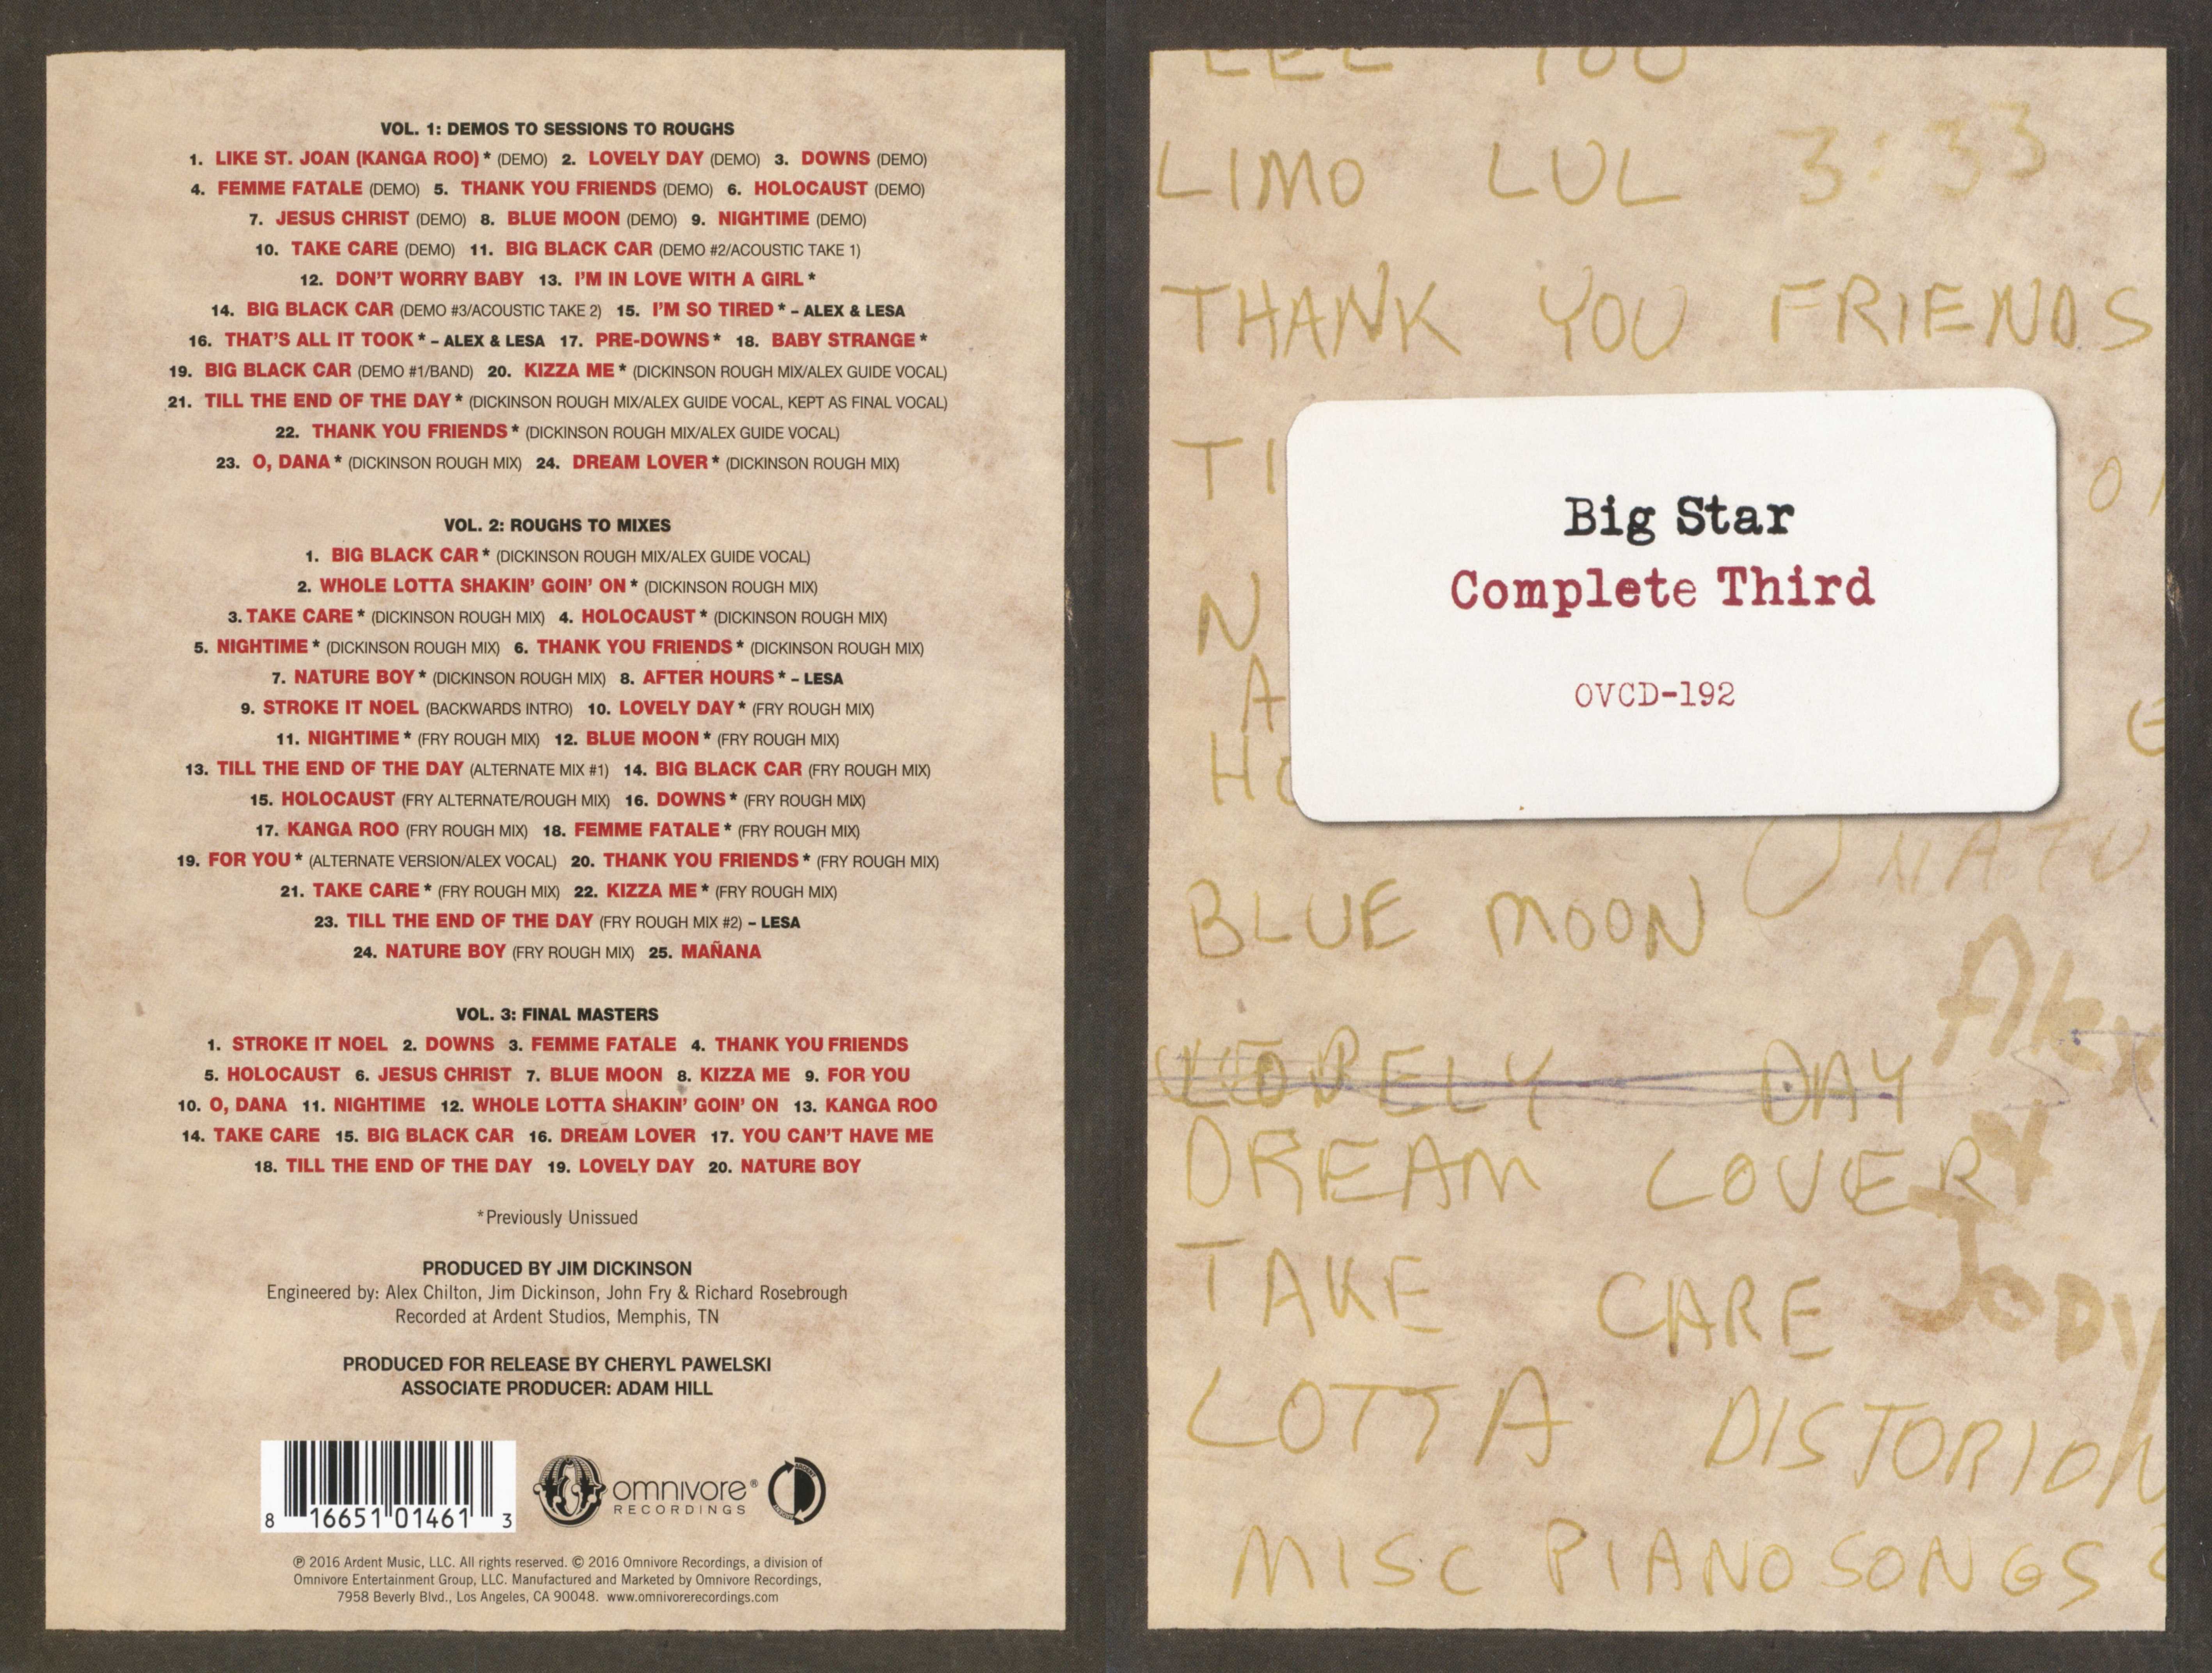 VOL. 1: DEMOS TO SESSIONS TO ROUGHS
1. LIKE ST. JOAN (KANGA ROO) * (DEMO) 2. LOVELY DAY (DEMO) 3. DOWNS (DEMO)
4. FEMME FATALE (DEMO) 5. THANK YOU FRIENDS (DEMO) 6. HOLOCAUST (DEMO)
7. JESUS CHRIST (DEMO) 8. BLUE MOON (DEMO) 9. NIGHTIME (DEMO)
10. TAKE CARE (DEMO) 11. BIG BLACK CAR (DEMO #2/ACOUSTIC TAKE 1)
12. DON'T WORRY BABY 13. I'M IN LOVE WITH A GIRL *
14. BIG BLACK CAR (DEMO #3/ACOUSTIC TAKE 2) 15. I'M SO TIRED * – ALEX & LESA
16. THAT'S ALL IT TOOK * – ALEX & LESA 17. PRE-DOWNS * 18. BABY STRANGE *
19. BIG BLACK CAR (DEMO #1/BAND) 20. KIZZA ME * (DICKINSON ROUGH MIX/ALEX GUIDE VOCAL)
21. TILL THE END OF THE DAY * (DICKINSON ROUGH MIX/ALEX GUIDE VOCAL, KEPT AS FINAL VOCAL)
22. THANK YOU FRIENDS * (DICKINSON ROUGH MIX/ALEX GUIDE VOCAL)
23. O, DANA * (DICKINSON ROUGH MIX) 24. DREAM LOVER * (DICKINSON ROUGH MIX)
VOL. 2: ROUGHS TO MIXES
1. BIG BLACK CAR * (DICKINSON ROUGH MIX/ALEX GUIDE VOCAL)
2. WHOLE LOTTA SHAKIN' GOIN' ON * (DICKINSON ROUGH MIX)
3. TAKE CARE * (DICKINSON ROUGH MIX) 4. HOLOCAUST * (DICKINSON ROUGH MIX)
5. NIGHTIME * (DICKINSON ROUGH MIX) 6. THANK YOU FRIENDS * (DICKINSON ROUGH MIX)
7. NATURE BOY * (DICKINSON ROUGH MIX) 8. AFTER HOURS * – LESA
9. STROKE IT NOEL (BACKWARDS INTRO) 10. LOVELY DAY * (FRY ROUGH MIX)
11. NIGHTIME * (FRY ROUGH MIX) 12. BLUE MOON * (FRY ROUGH MIX)
13. TILL THE END OF THE DAY (ALTERNATE MIX #1) 14. BIG BLACK CAR (FRY ROUGH MIX)
15. HOLOCAUST (FRY ALTERNATE/ROUGH MIX) 16. DOWNS * (FRY ROUGH MIX)
17. KANGA ROO (FRY ROUGH MIX) 18. FEMME FATALE * (FRY ROUGH MIX)
19. FOR YOU * (ALTERNATE VERSION/ALEX VOCAL) 20. THANK YOU FRIENDS * (FRY ROUGH MIX)
21. TAKE CARE * (FRY ROUGH MIX) 22. KIZZA ME * (FRY ROUGH MIX)
23. TILL THE END OF THE DAY (FRY ROUGH MIX #2) – LESA
24. NATURE BOY (FRY ROUGH MIX) 25. MAÑANA
VOL. 3: FINAL MASTERS
1. STROKE IT NOEL 2. DOWNS 3. FEMME FATALE 4. THANK YOU FRIENDS
5. HOLOCAUST 6. JESUS CHRIST 7. BLUE MOON 8. KIZZA ME 9. FOR YOU
10. O, DANA 11. NIGHTIME 12. WHOLE LOTTA SHAKIN' GOIN' ON 13. KANGA ROO
14. TAKE CARE 15. BIG BLACK CAR 16. DREAM LOVER 17. YOU CAN'T HAVE ME
18. TILL THE END OF THE DAY 19. LOVELY DAY 20. NATURE BOY
*Previously Unissued
PRODUCED BY JIM DICKINSON
Engineered by: Alex Chilton, Jim Dickinson, John Fry & Richard Rosebrough
Recorded at Ardent Studios, Memphis, TN
PRODUCED FOR RELEASE BY CHERYL PAWELSKI
ASSOCIATE PRODUCER: ADAM HILL
8 16651 01461 3
omnivore®
RECORDINGS
℗ 2016 Ardent Music, LLC. All rights reserved. © 2016 Omnivore Recordings, a division of
Omnivore Entertainment Group, LLC. Manufactured and Marketed by Omnivore Recordings,
7958 Beverly Blvd., Los Angeles, CA 90048. www.omnivorerecordings.com
LIMO LUL 3:33
THANK YOU FRIENDS
Big Star
Complete Third
OVCD-192
BLUE MOON
Alex
LOVELY DAY
DREAM LOVER
Y
TAKE CARE
JODY
LOTTA DISTORION
MISC PIANO SONGS